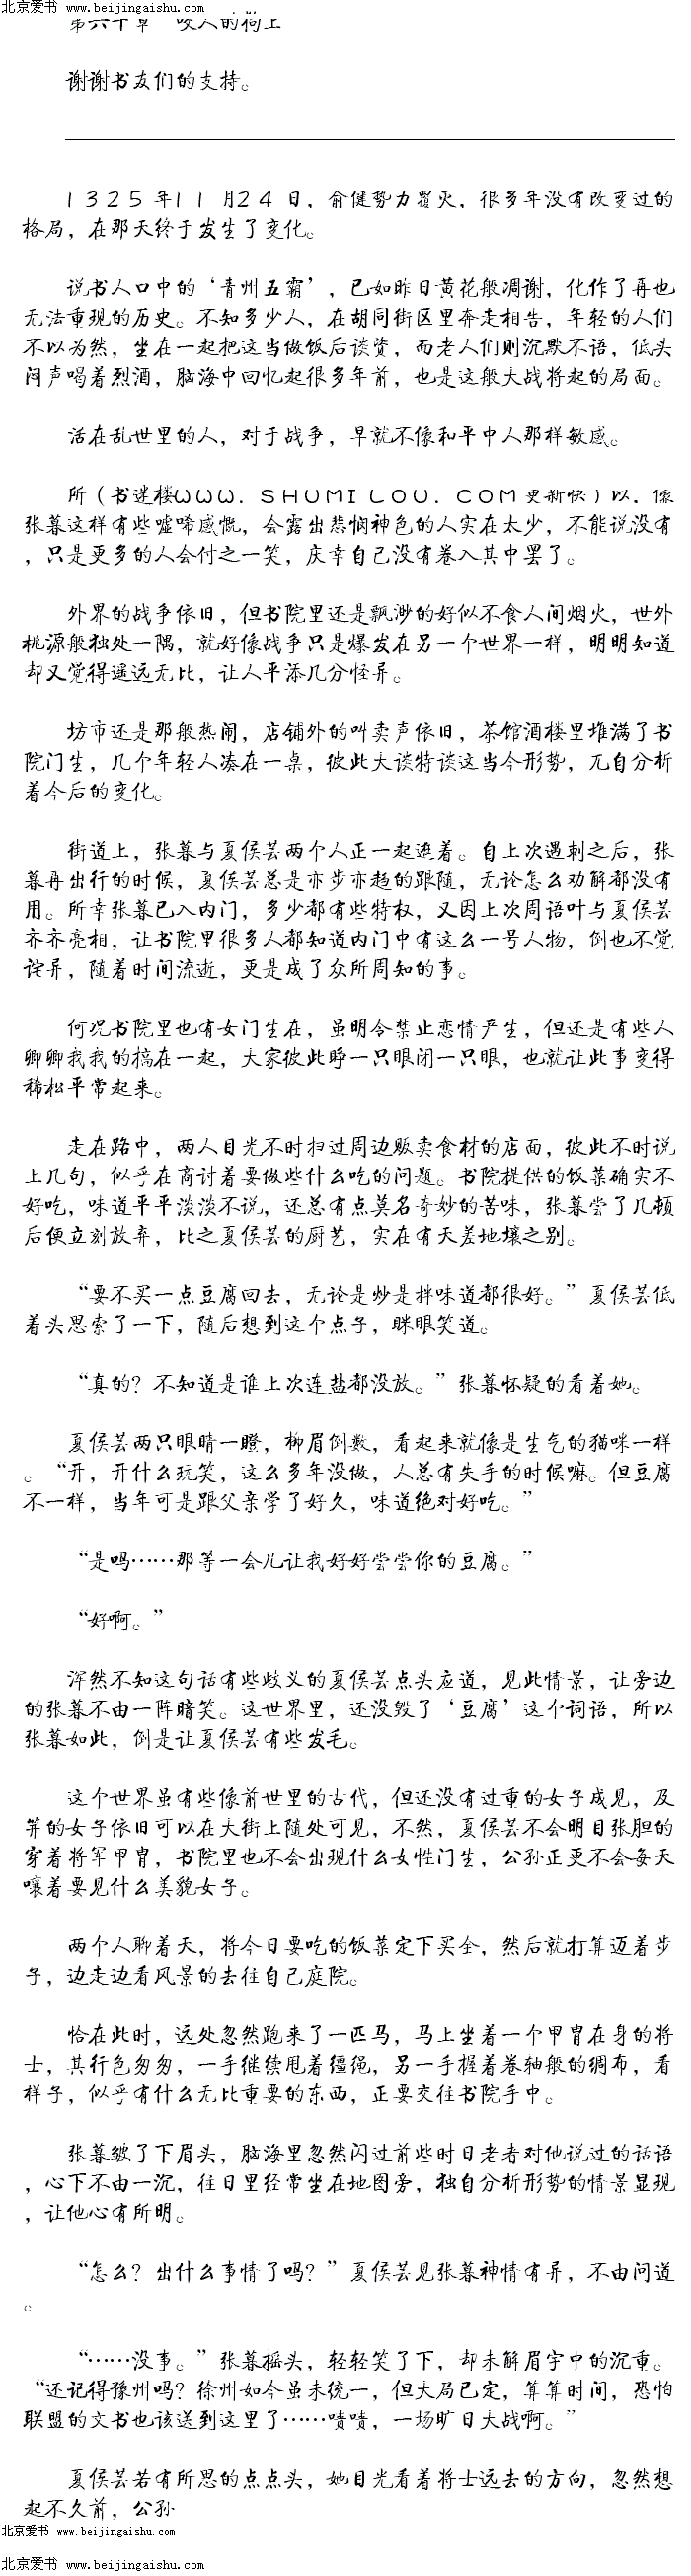 北京爱书 www.beijingaishu.com
第六十章 咬人的和上
谢谢书友们的支持。
1325年11月24日，俞健势力覆灭，很多年没有改变过的
格局，在那天终于发生了变化。
说书人口中的‘青州五霸’，已如昨日黄花般凋谢，化作了再也
无法重现的历史。不知多少人，在胡同街区里奔走相告，年轻的人们
不以为然，坐在一起把这当做饭后谈资，而老人们则沉默不语，低头
闷声喝着烈酒，脑海中回忆起很多年前，也是这般大战将起的局面。
活在乱世里的人，对于战争，早就不像和平中人那样敏感。
所（书迷楼WWW.SHUMILOU.COM更新快）以，像
张暮这样有些嘘唏感慨，会露出悲悯神色的人实在太少，不能说没有
，只是更多的人会付之一笑，庆幸自己没有卷入其中罢了。
外界的战争依旧，但书院里还是飘渺的好似不食人间烟火，世外
桃源般独处一隅，就好像战争只是爆发在另一个世界一样，明明知道
却又觉得遥远无比，让人平添几分怪异。
坊市还是那般热闹，店铺外的叫卖声依旧，茶馆酒楼里堆满了书
院门生，几个年轻人凑在一桌，彼此大谈特谈这当今形势，兀自分析
着今后的变化。
街道上，张暮与夏侯芸两个人正一起逛着。自上次遇刺之后，张
暮再出行的时候，夏侯芸总是亦步亦趋的跟随，无论怎么劝解都没有
用。所幸张暮已入内门，多少都有些特权，又因上次周语叶与夏侯芸
齐齐亮相，让书院里很多人都知道内门中有这么一号人物，倒也不觉
诧异，随着时间流逝，更是成了众所周知的事。
何况书院里也有女门生在，虽明令禁止恋情产生，但还是有些人
卿卿我我的搞在一起，大家彼此睁一只眼闭一只眼，也就让此事变得
稀松平常起来。
走在路中，两人目光不时扫过周边贩卖食材的店面，彼此不时说
上几句，似乎在商讨着要做些什么吃的问题。书院提供的饭菜确实不
好吃，味道平平淡淡不说，还总有点莫名奇妙的苦味，张暮尝了几顿
后便立刻放弃，比之夏侯芸的厨艺，实在有天差地壤之别。
“要不买一点豆腐回去，无论是炒是拌味道都很好。”夏侯芸低
着头思索了一下，随后想到这个点子，眯眼笑道。
“真的？不知道是谁上次连盐都没放。”张暮怀疑的看着她。
夏侯芸两只眼睛一瞪，柳眉倒数，看起来就像是生气的猫咪一样
。“开，开什么玩笑，这么多年没做，人总有失手的时候嘛。但豆腐
不一样，当年可是跟父亲学了好久，味道绝对好吃。”
“是吗……那等一会儿让我好好尝尝你的豆腐。”
“好啊。”
浑然不知这句话有些歧义的夏侯芸点头应道，见此情景，让旁边
的张暮不由一阵暗笑。这世界里，还没毁了‘豆腐’这个词语，所以
张暮如此，倒是让夏侯芸有些发毛。
这个世界虽有些像前世里的古代，但还没有过重的女子成见，及
笄的女子依旧可以在大街上随处可见，不然，夏侯芸不会明目张胆的
穿着将军甲胄，书院里也不会出现什么女性门生，公孙正更不会每天
嚷着要见什么美貌女子。
两个人聊着天，将今日要吃的饭菜定下买全，然后就打算迈着步
子，边走边看风景的去往自己庭院。
恰在此时，远处忽然跑来了一匹马，马上坐着一个甲胄在身的将
士，其行色匆匆，一手继续甩着缰绳，另一手握着卷轴般的绸布，看
样子，似乎有什么无比重要的东西，正要交往书院手中。
张暮皱了下眉头，脑海里忽然闪过前些时日老者对他说过的话语
，心下不由一沉，往日里经常坐在地图旁，独自分析形势的情景显现
，让他心有所明。
“怎么？出什么事情了吗？”夏侯芸见张暮神情有异，不由问道
。
“……没事。”张暮摇头，轻轻笑了下，却未解眉宇中的沉重。
“还记得豫州吗？徐州如今虽未统一，但大局已定，算算时间，恐怕
联盟的文书也该送到这里了……啧啧，一场旷日大战啊。”
夏侯芸若有所思的点点头，她目光看着将士远去的方向，忽然想
起不久前，公孙
北京爱书 www.beijingaishu.com
北京爱书 www.beijingaishu.com